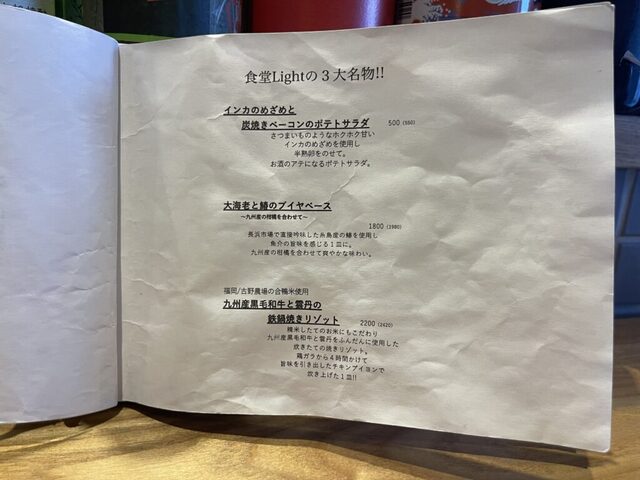 食堂Lightの3大名物!!
インカのめざめと
炭焼きベーコンのポテトサラダ 500 (550)
さつまいものようなホクホク甘い
インカのめざめを使用し
半熟卵をのせて。
お酒のアテになるポテトサラダ。
大海老と鰆のブイヤベース
~九州産の柑橘を合わせて~
1800 (1980)
長浜市場で直接吟味した糸島産の鰆を使用し
魚介の旨味を感じる1皿に。
九州産の柑橘を合わせて爽やかな味わい。
福岡/古野農場の合鴨米使用
九州産黒毛和牛と雲丹の
鉄鍋焼きリゾット 2200 (2420)
精米したてのお米にもこだわり
九州産黒毛和牛と雲丹をふんだんに使用した
炊きたての焼きリゾット。
鶏ガラから4時間かけて
旨味を引き出したチキンブイヨンで
炊き上げた1皿!!